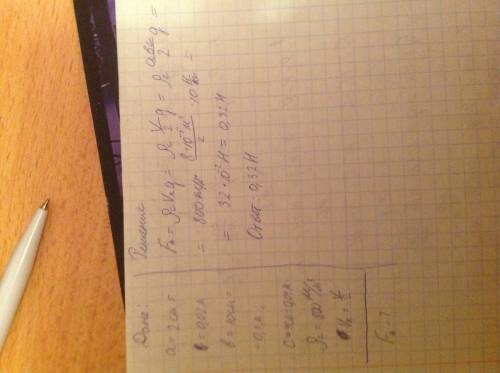 Дано:
a = 2 см =
= 0,02 м
b = 10 см =
= 0,1 м
c = 4 см = 0,04 м
ρ = 800 кг/м³
Vₙ = V/2
Fₐ - ?
Решение
Fₐ = ρ Vₙ g = ρ V/2 g = ρ abc/2 g =
= 800 кг/м³ · 8·10⁻⁵ м³/2 · 10 Н/кг =
= 32·10⁻² Н = 0,32 Н
Ответ 0,32 Н